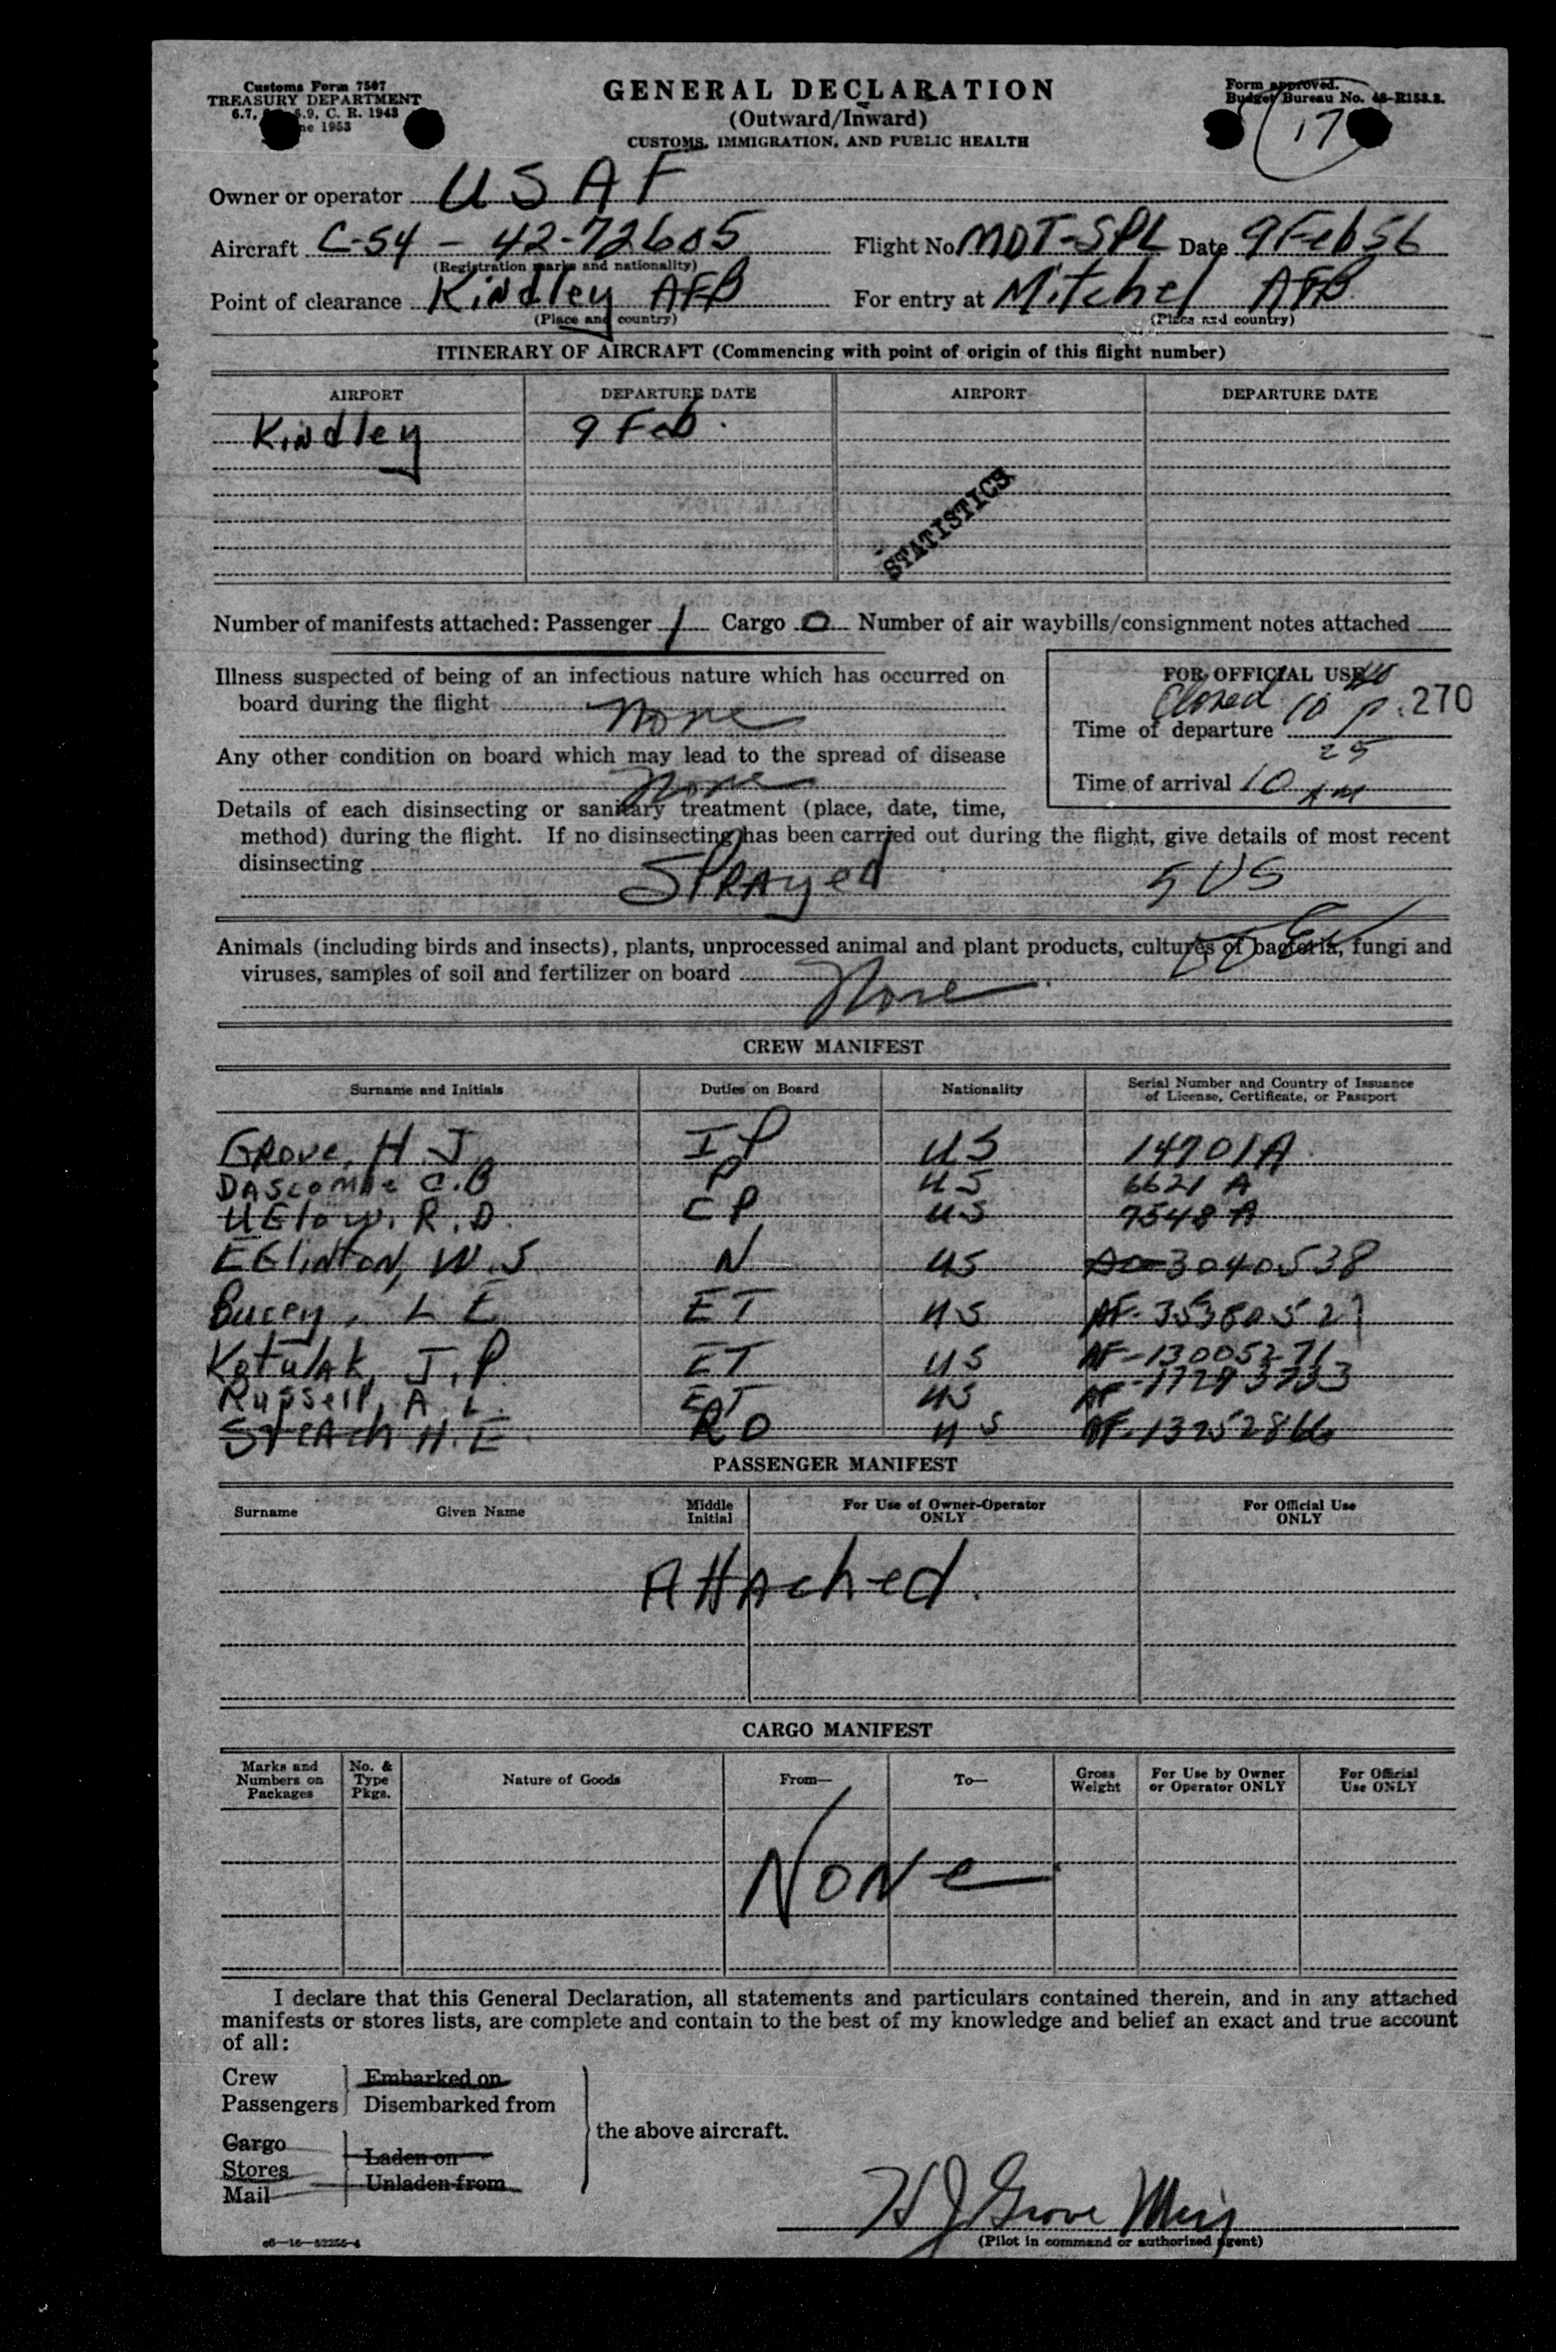 Customs Form 7507
TREASURY DEPARTMENT
6.7, 6.9, C. R. 1943
1953
GENERAL DECLARATION
(Outward/Inward)
CUSTOMS, IMMIGRATION, AND PUBLIC HEALTH
Form approved.
Budget Bureau No. 48-R153.3.
17
Owner or operator USAF
Aircraft C-54 - 42-72605 Flight No. MDT-SPL Date 9 Feb 56
(Registration marks and nationality)
Point of clearance Kindley AFB For entry at Mitchel AFB
(Place and country) (Place and country)
ITINERARY OF AIRCRAFT (Commencing with point of origin of this flight number)
AIRPORT DEPARTURE DATE AIRPORT DEPARTURE DATE
Kindley 9 Feb.
STATISTICS
Number of manifests attached: Passenger 1 Cargo 0 Number of air waybills/consignment notes attached
Illness suspected of being of an infectious nature which has occurred on
board during the flight None
Any other condition on board which may lead to the spread of disease
None
FOR OFFICIAL USE
Closed 10 P .270
Time of departure
25
Time of arrival 10 AM
Details of each disinsecting or sanitary treatment (place, date, time,
method) during the flight. If no disinsecting has been carried out during the flight, give details of most recent
disinsecting
Sprayed 5 US
Animals (including birds and insects), plants, unprocessed animal and plant products, cultures of bacteria, fungi and
viruses, samples of soil and fertilizer on board None
CREW MANIFEST
Surname and Initials Duties on Board Nationality Serial Number and Country of Issuance
of License, Certificate, or Passport
Grove, H. J. IP US 14701A
Dascombe C.B P US 6621 A
Uelow, R.D. CP US 7548 A
Eglinton, W.S N US AO-3040538
Bucey, L E ET US AF-35380521
Kotulak, J.P. ET US AF-13005271
Russell, A. L. ET US AF-17293733
Streach H.E. RO US AF-13252866
PASSENGER MANIFEST
Surname Given Name Middle
Initial For Use of Owner-Operator
ONLY For Official Use
ONLY
Attached.
CARGO MANIFEST
Marks and
Numbers on
Packages No. &
Type
Pkgs. Nature of Goods From— To— Gross
Weight For Use by Owner
or Operator ONLY For Official
Use ONLY
None
I declare that this General Declaration, all statements and particulars contained therein, and in any attached
manifests or stores lists, are complete and contain to the best of my knowledge and belief an exact and true account
of all:
Crew Embarked on
Passengers Disembarked from
the above aircraft.
Cargo
Stores Laden on
Mail Unladen from
H J Grove Maj
(Pilot in command or authorized agent)
c6—16—52255-4